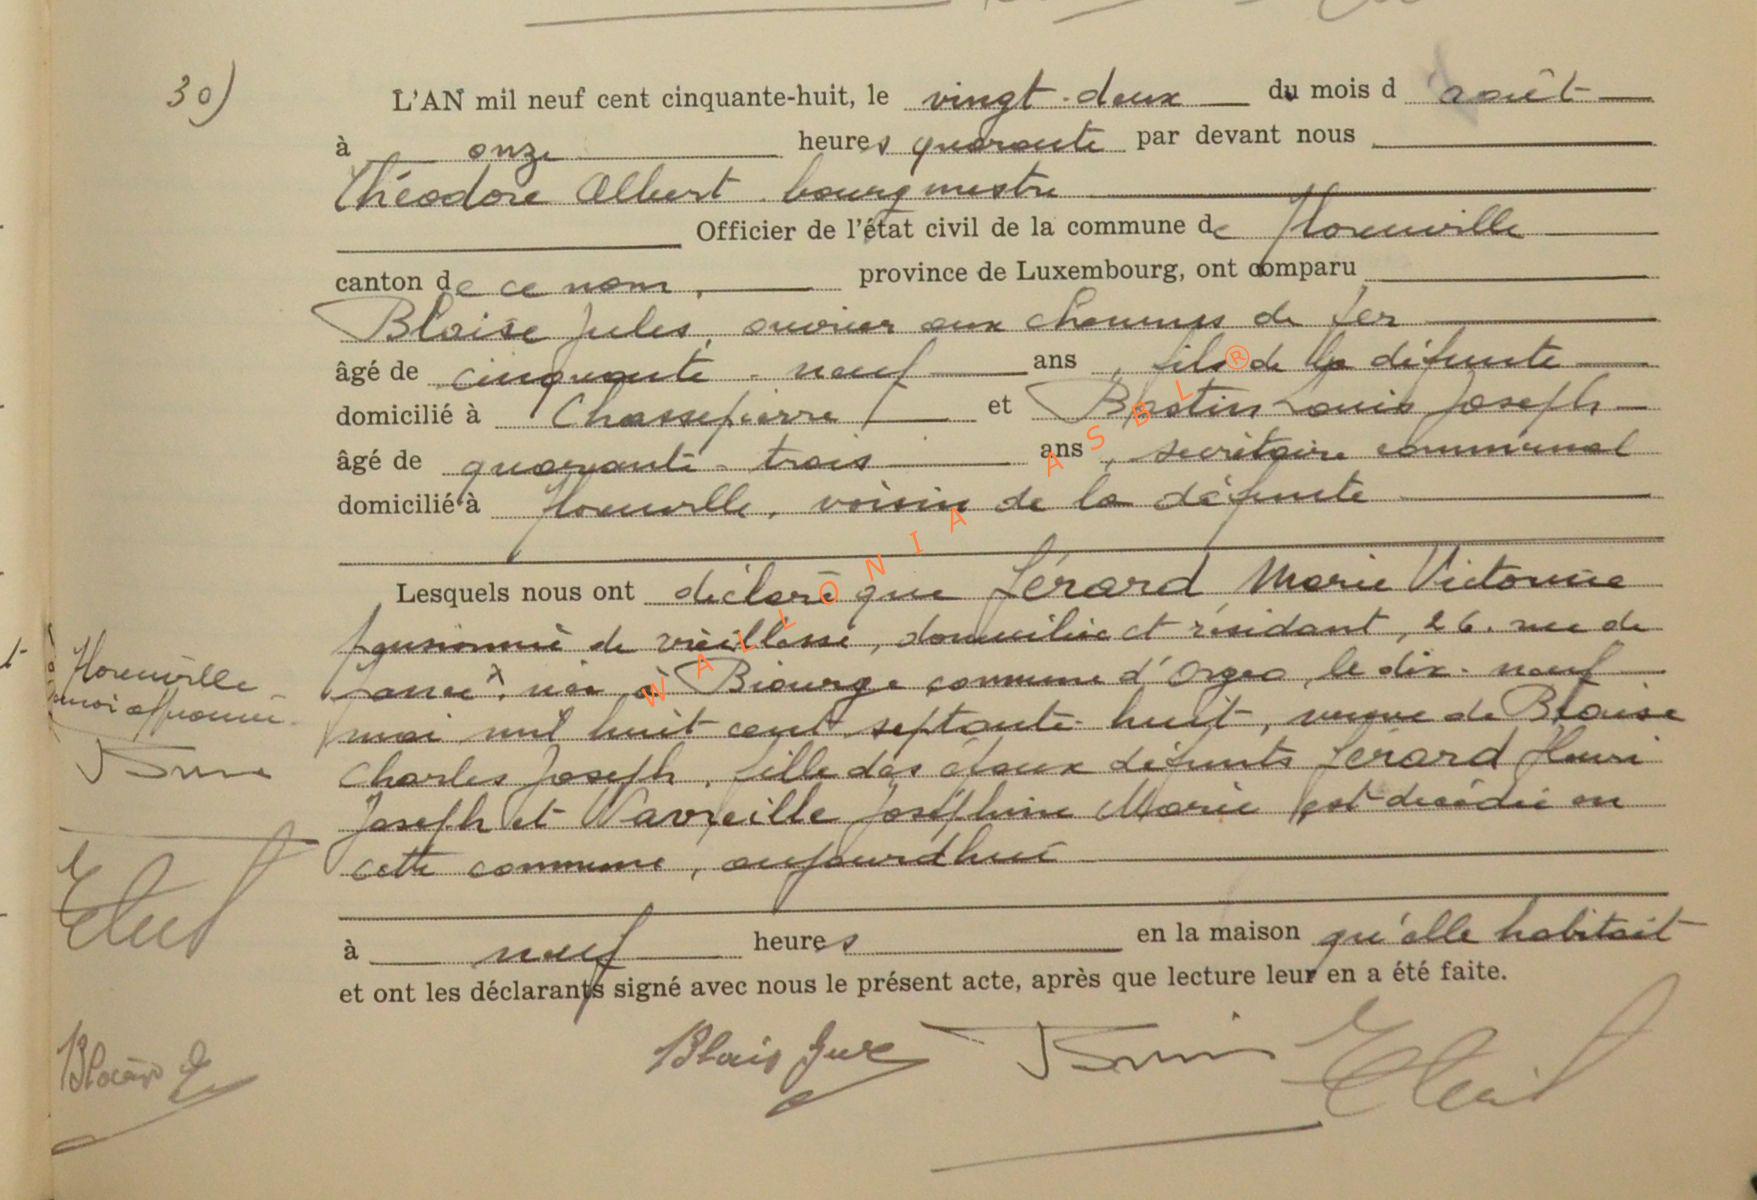 30)
L'AN mil neuf cent cinquante-huit, le vingt-deux du mois d août
à onze heures quarante par devant nous
Théodore Albert bourgmestre
Officier de l'état civil de la commune de Florenville
canton de ce nom, province de Luxembourg, ont comparu
Blaise Jules, ouvrier aux chemins de fer
âgé de cinquante-neuf ans, fils de la défunte
domicilié à Chassepierre et Bastin Louis Joseph
âgé de quarante-trois ans, secrétaire communal
domicilié à Florenville, voisin de la défunte
Lesquels nous ont déclaré que Gérard Marie Victorine
pensionnée de vieillesse, domiciliée et résidant, 26, rue de
née à Biourge commune d'Orgeo, le dix-neuf
mai mil huit cent septante-huit, veuve de Blaise
Charles Joseph, fille des époux défunts Gérard Henri
Joseph et Wavreille Joséphine Marie est décédée en
cette commune, aujourd'hui
à neuf heures en la maison qu'elle habitait
et ont les déclarants signé avec nous le présent acte, après que lecture leur en a été faite.
Florenville
renvoi approuvé
WALLONIA ASBL ®